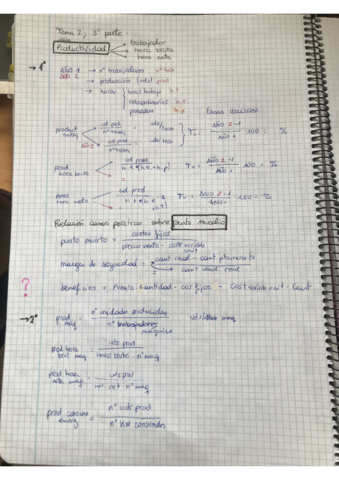 Tema 2, 3ª parte
Productividad
trabajador
hora bruta
hora neta
1º
AÑO 1 → nº trabajadores
AÑO 2 → producción (uds) prod
→ horas
horas trabajo h.t
extraordinarias h.e
paradas h.p
tasas variación
ud prod
nº trab
AÑO 2 - 1
AÑO 1
· 100 = %
prod
hora bruta
ud prod
AÑO 2 - 1
AÑO 1
· 100 = %
prod
hora neta
ud prod
AÑO 2 - 1
AÑO 1
· 100 = %
Relación casos prácticos sobre punto muerto
punto muerto = costes fijos
precio venta - coste variable
unit
margen de seguridad = cant real - cant pto muerto
cant real
?
beneficios = Precio · Cantidad - cos fijos - Cost variable unit · Cant
→ 2º
prod
maq
= nº unidades producidas
nº trabajadores
máquina
prod hora
brut maq
= uds prod
horas brutas nº maq
prod hora
neta maq
= uds prod
net nº maq
prod consumo
energ
= nº uds prod
nº KW consumidos